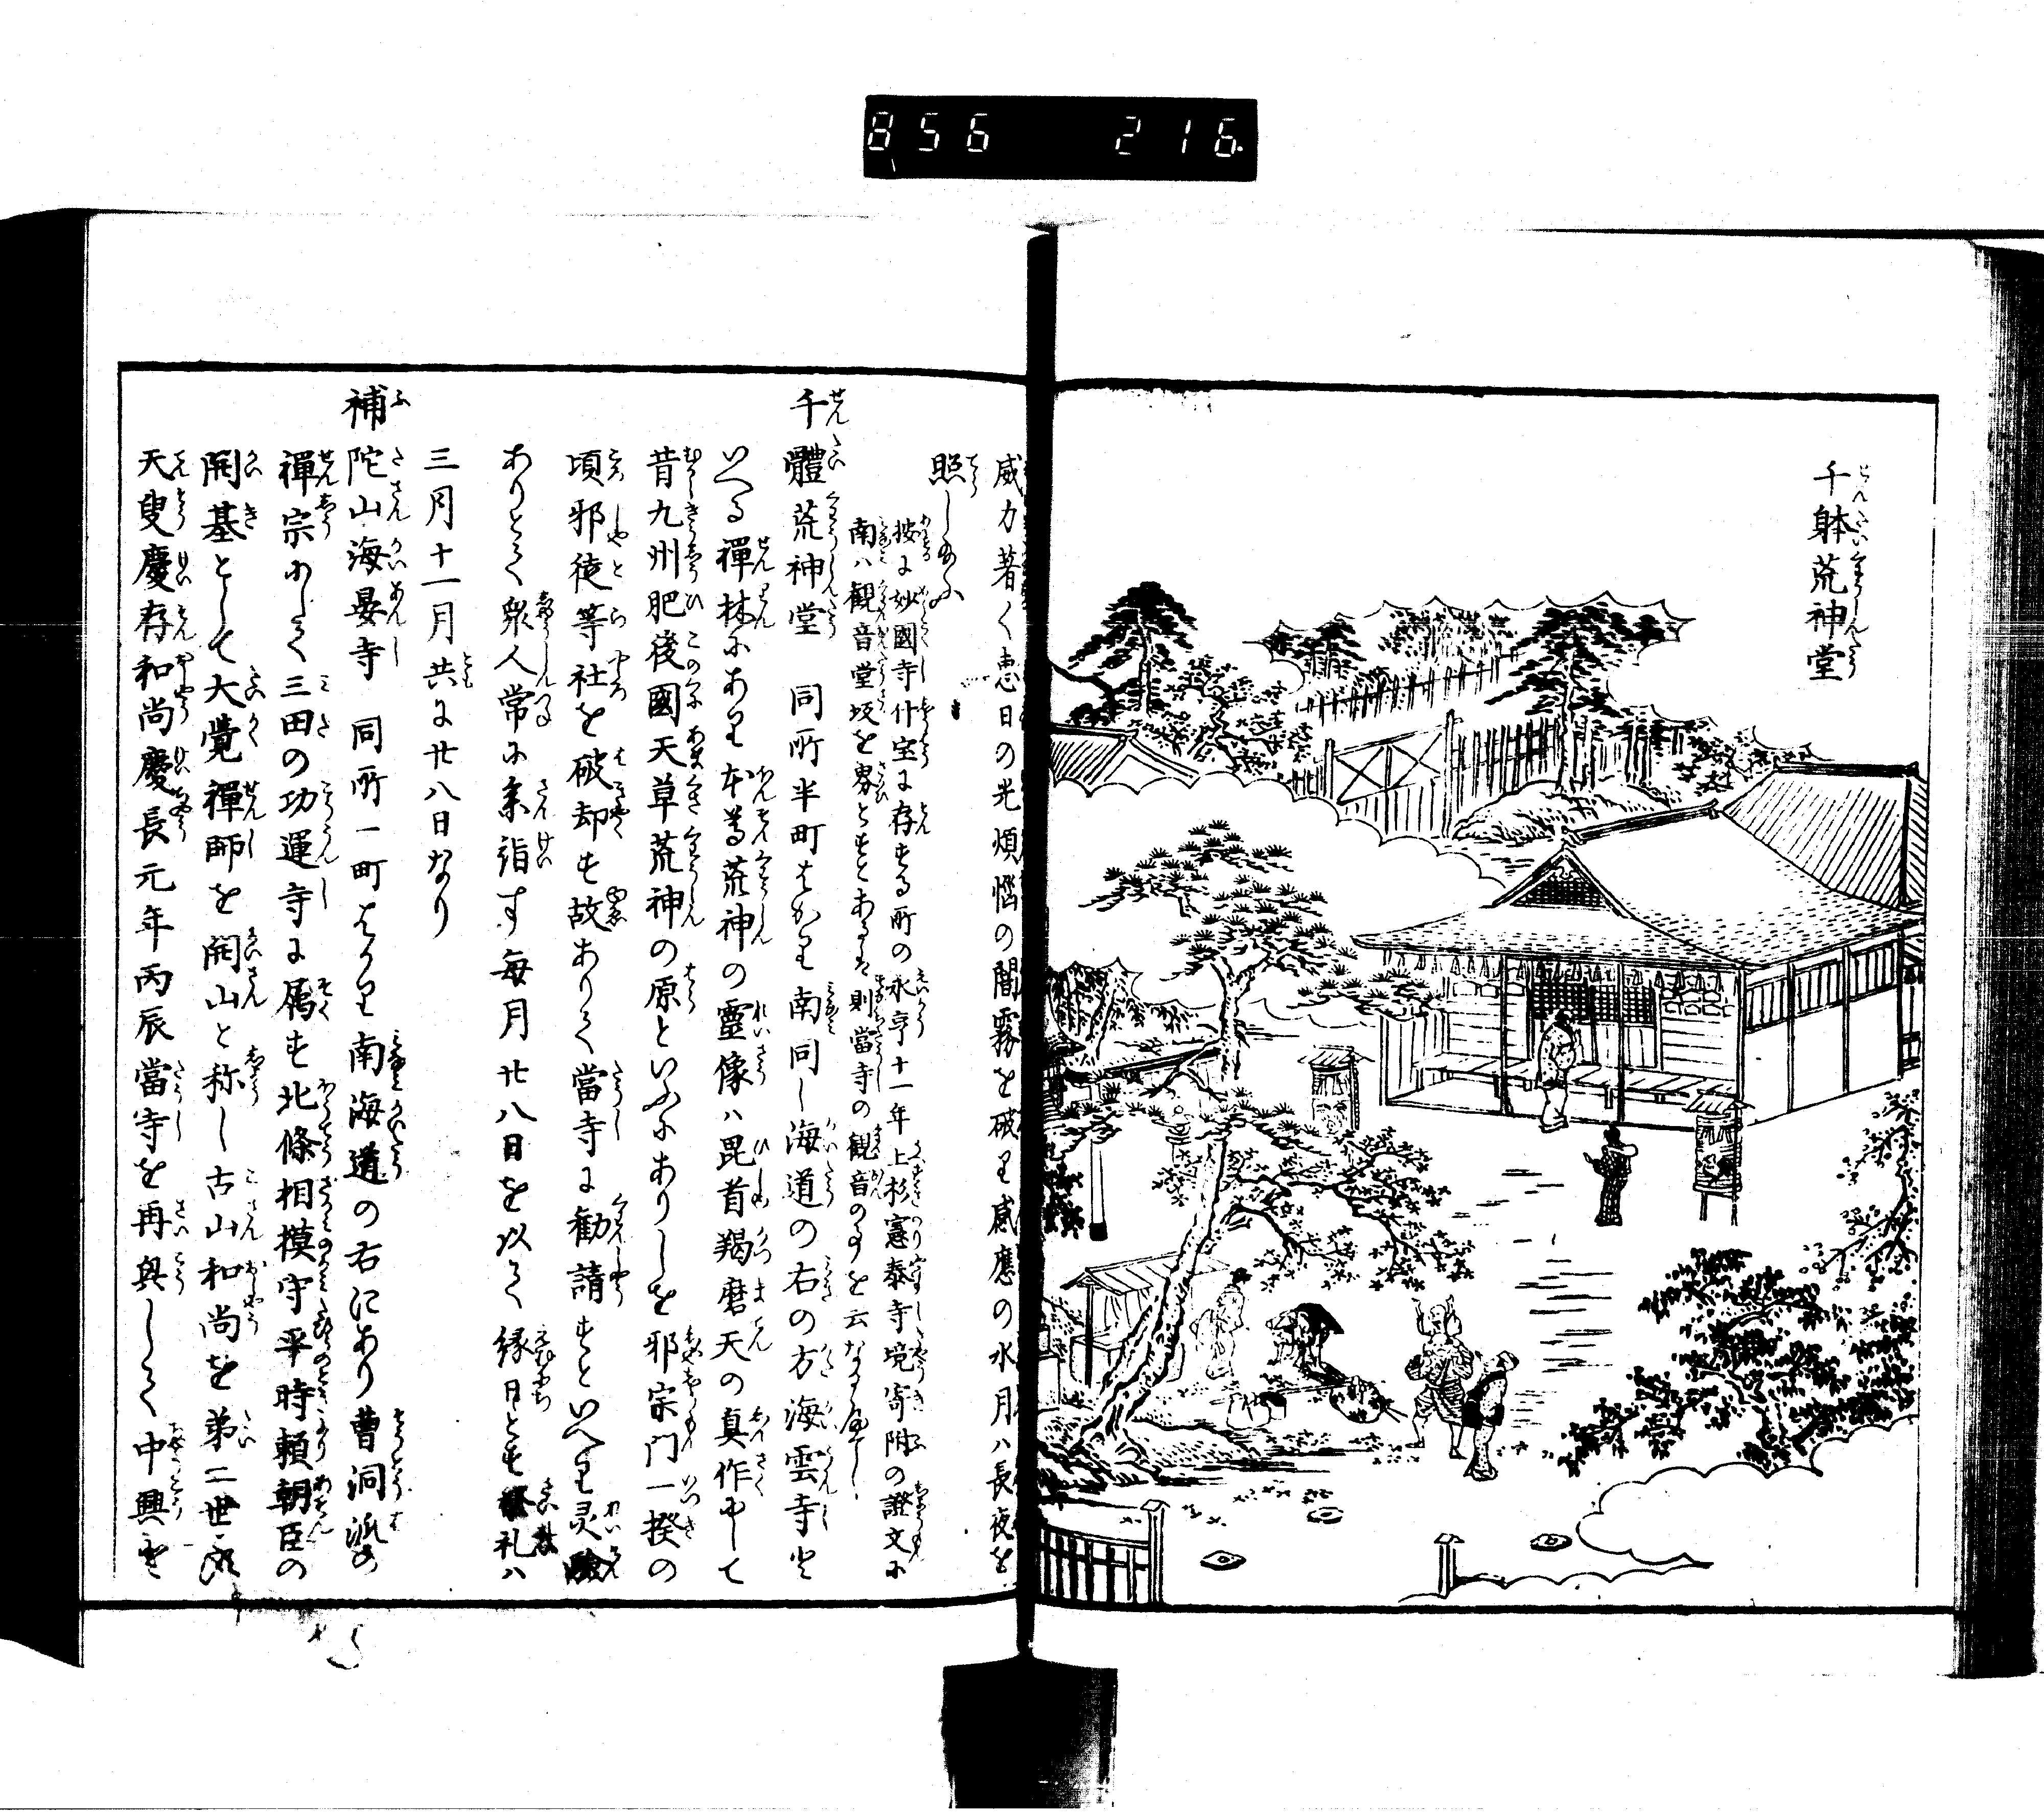 856 216
千躰荒神堂
威力著く恵日の光煩悩の闇霧を破り感應の水月ハ長夜を
照しあふ
按に妙國寺什宝に存する所の永亨十一年上杉憲泰寺境寄附の證文に
南ハ観音堂坂を界とすとあるハ則當寺の観音の事を云なるべし
千體荒神堂 同所半町はかり南同し海道の右の方海雲寺と
いへる禪林にあり本尊荒神の靈像ハ毘首羯磨天の真作にして
昔九州肥後國天草荒神の原といふにありしを邪宗門一揆の
頃邪徒等社を破却す故ありて當寺に勧請すといへり灵験
ありとて衆人常に参詣す毎月廿八日を以て縁日とす祭礼ハ
三月十一月共に廿八日なり
補陀山海晏寺 同所一町はかり南海道の右にあり曹洞派の
禪宗にして三田の功運寺に属す北條相摸守平時頼朝臣の
開基として大覚禪師を開山と称し古山和尚を第二世
天叟慶存和尚慶長元年丙辰當寺を再興して中興す